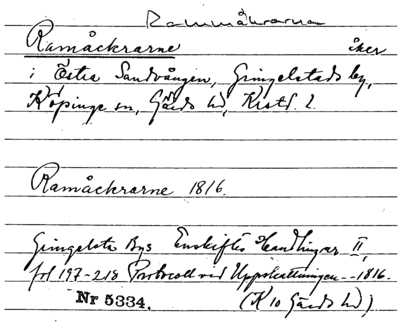 Rammåkrarna
Ramåckrarne åker
i Östra Sandvången, Gringelstads by,
Köpinge sn, Gärds hd, Krist. l.
Ramåckrarne 1816.
Gringelsta Bys Enskiftes Handlingar II,
fol 197-218 Protocoll vid Uppskattningen -- 1816.
Nr 5334. (K 10 Gärds hd)